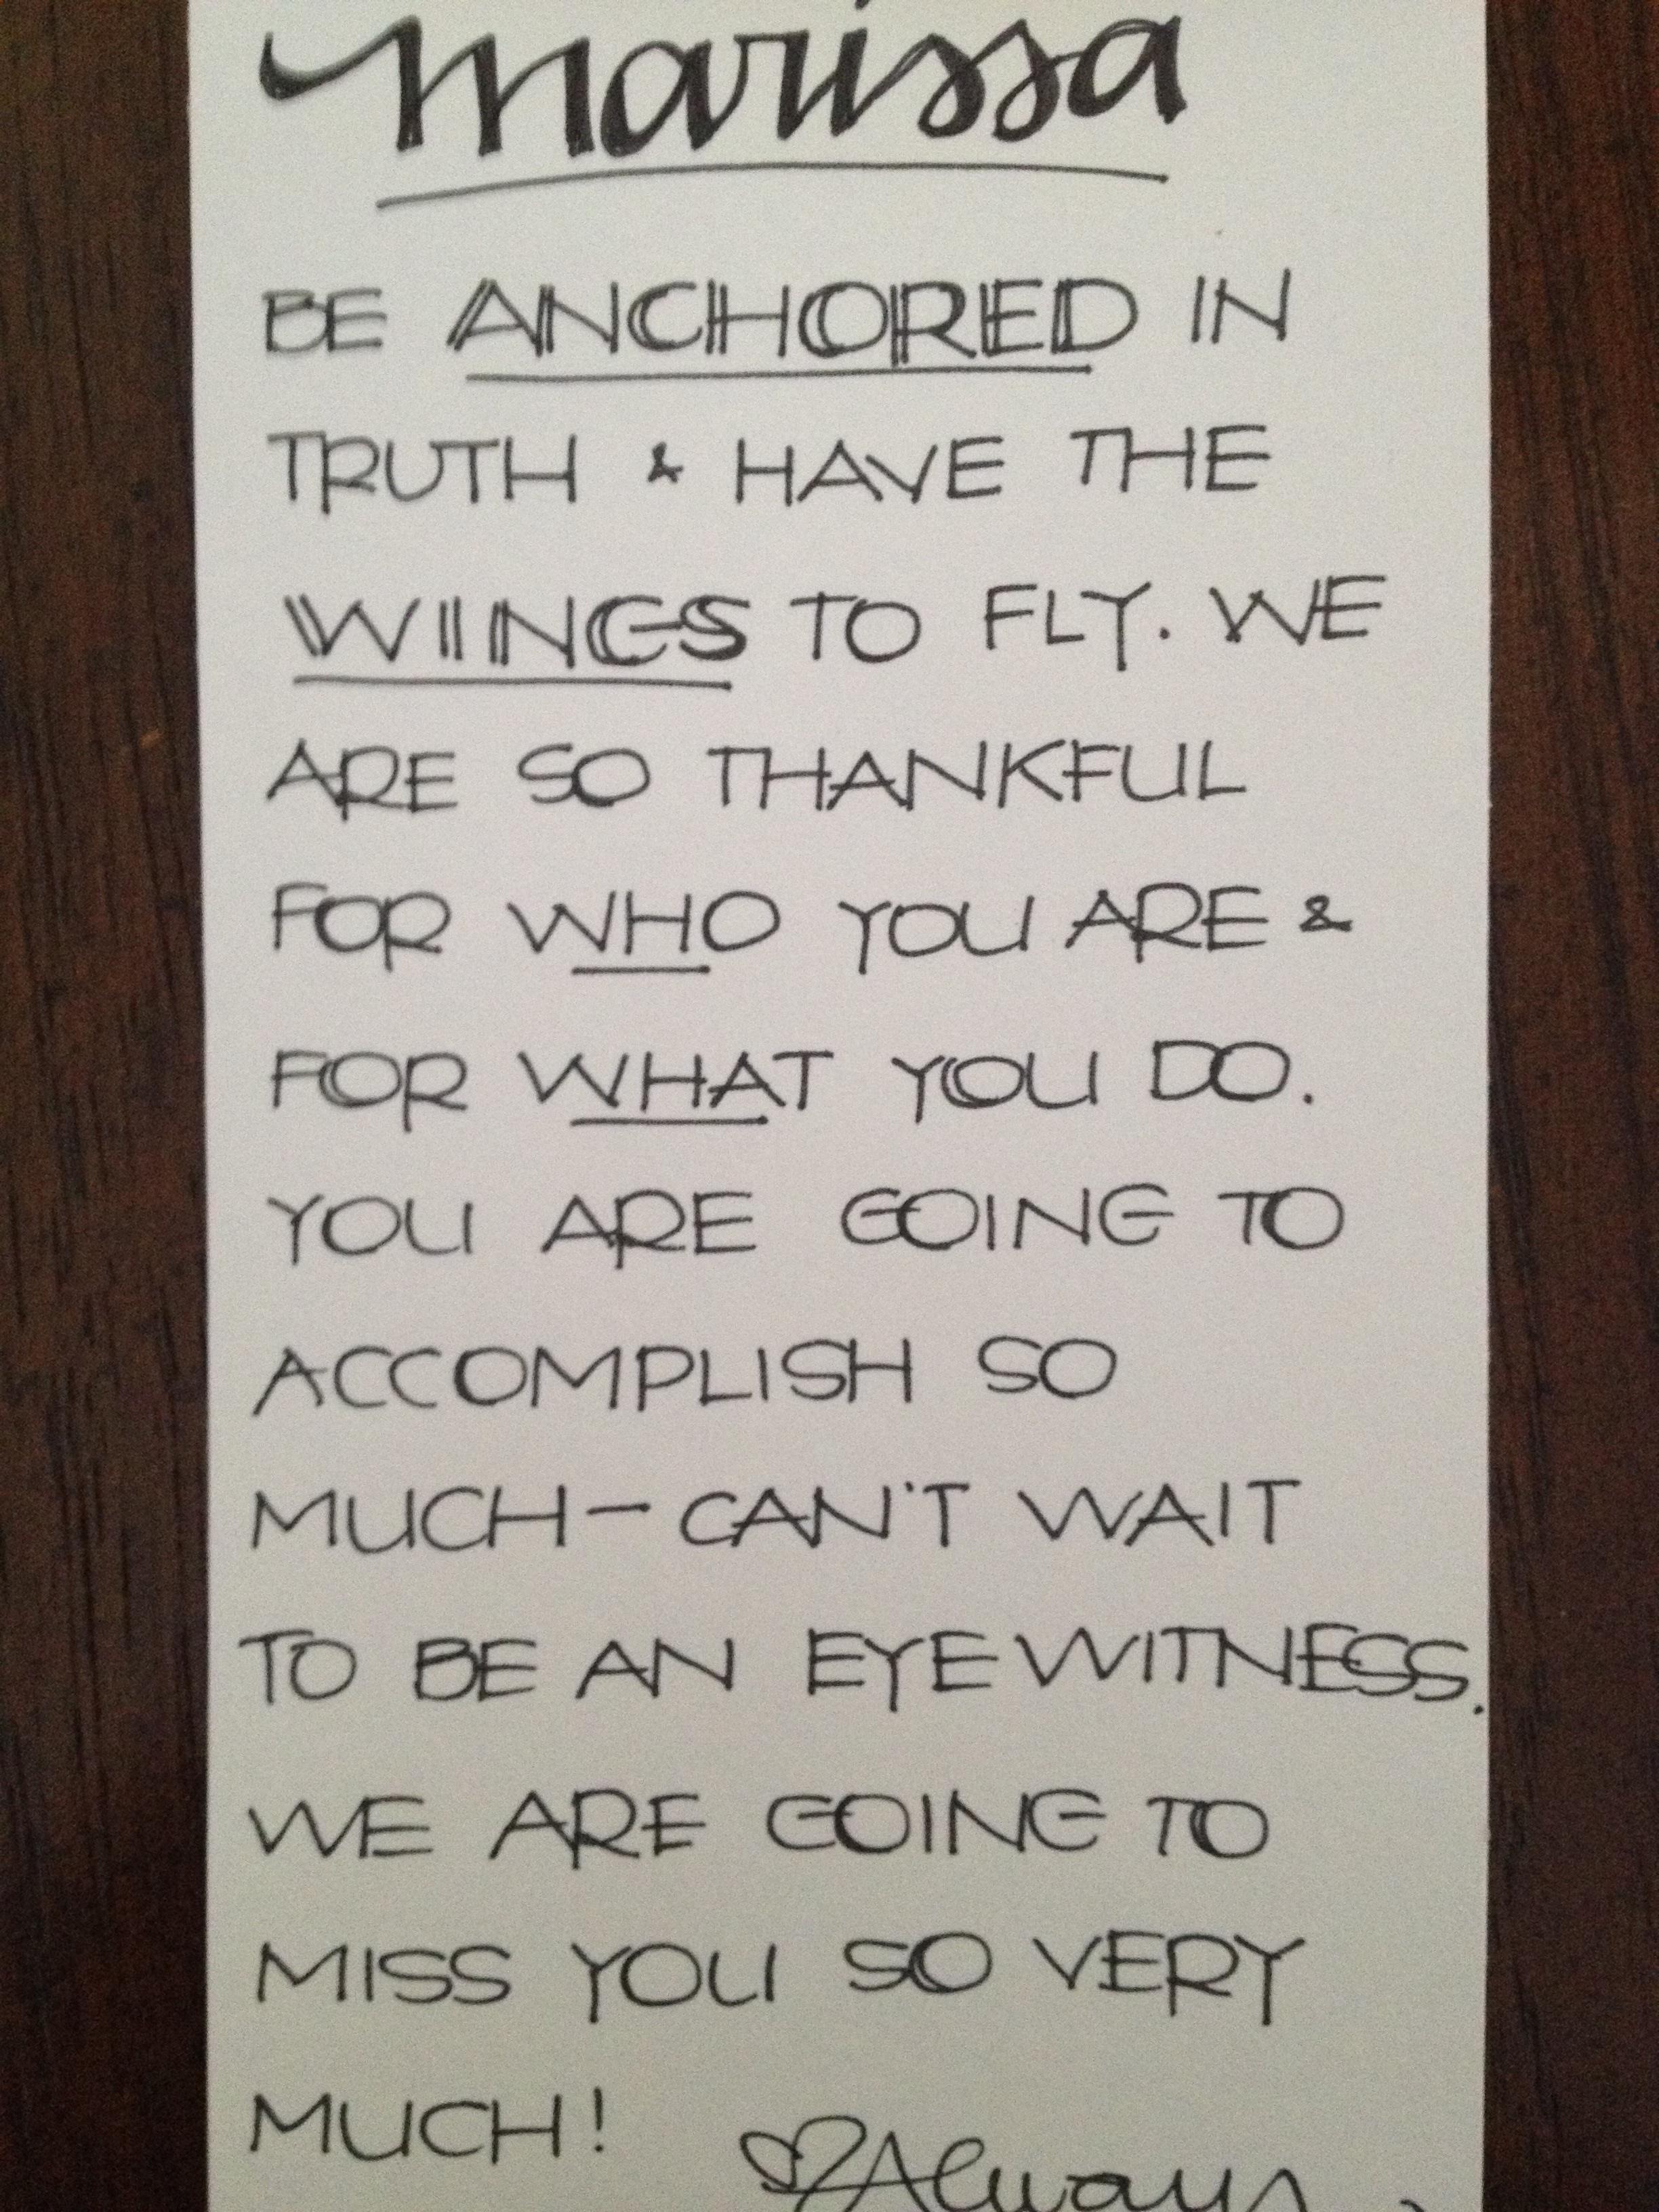 marissa
BE ANCHORED IN
TRUTH & HAVE THE
WINGS TO FLY. WE
ARE SO THANKFUL
FOR WHO YOU ARE &
FOR WHAT YOU DO.
YOU ARE GOING TO
ACCOMPLISH SO
MUCH - CAN'T WAIT
TO BE AN EYEWITNESS.
WE ARE GOING TO
MISS YOU SO VERY
MUCH! Always